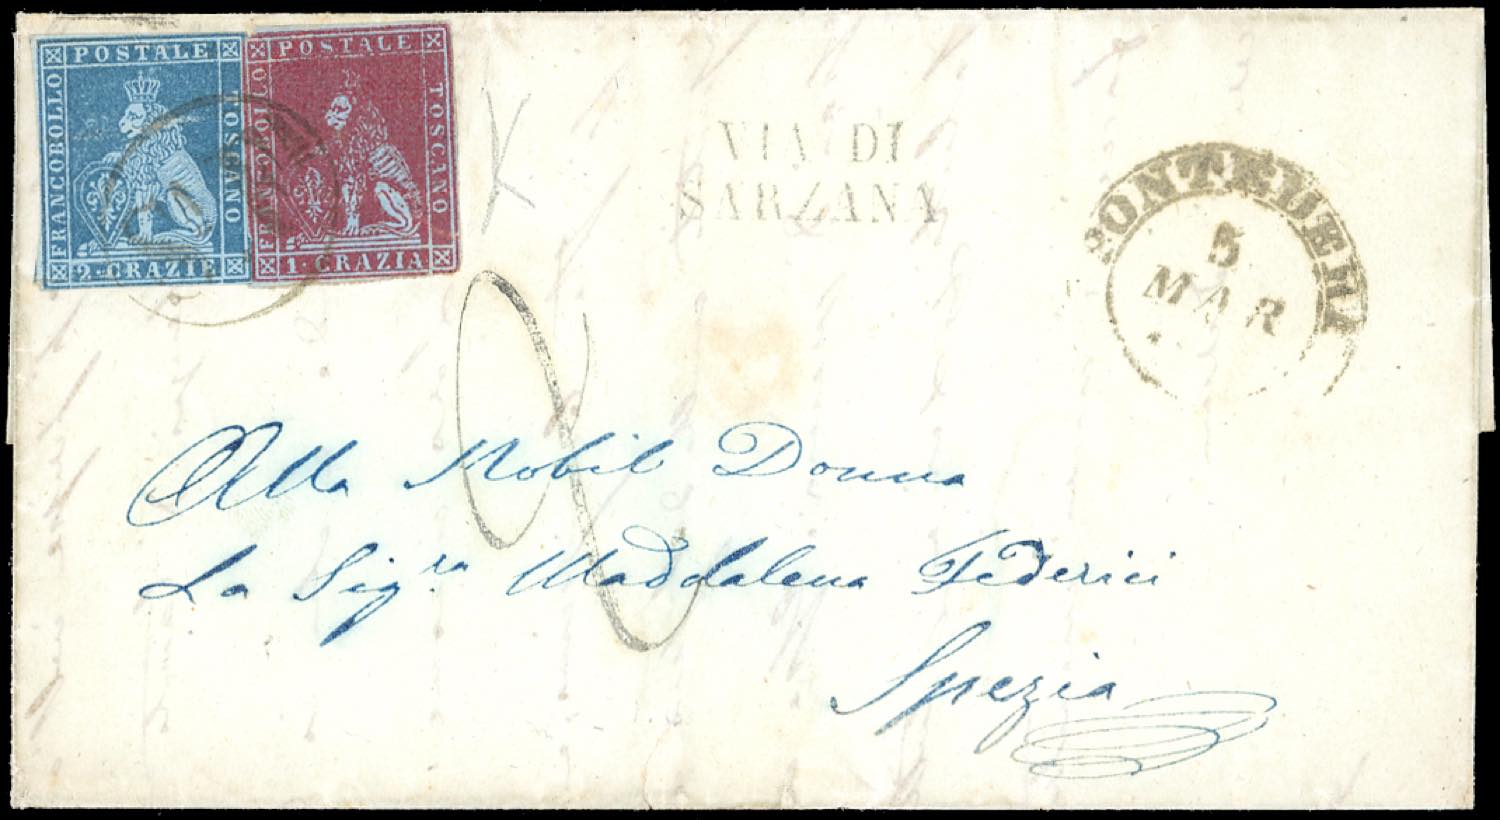 POSTALE
FRANCOBOLLO
TOSCANO
2·CRAZIE
POSTALE
FRANCOBOLLO
TOSCANO
1·CRAZIA
VIA DI
SARZANA
PONTEDERA
5
MAR
Alla Nobil Donna
La Sig.ra Maddalena Federici
Spezia